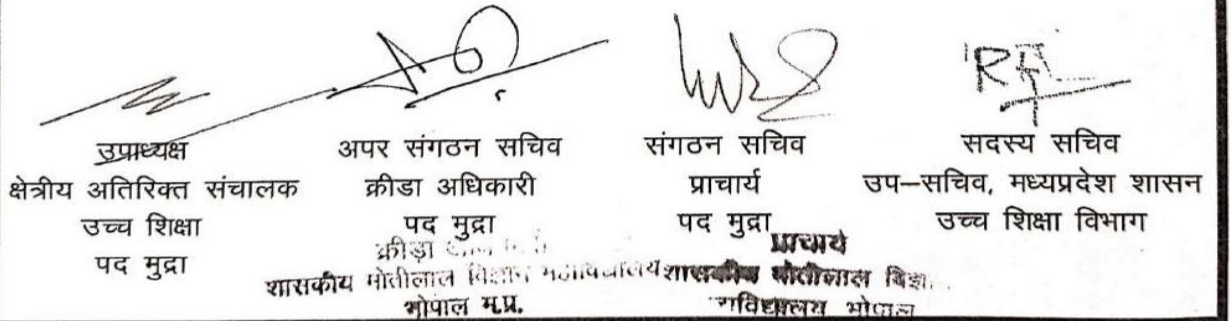 उपाध्यक्ष
क्षेत्रीय अतिरिक्त संचालक
उच्च शिक्षा
पद मुद्रा
अपर संगठन सचिव
क्रीडा अधिकारी
पद मुद्रा
क्रीड़ा
शासकीय मोतीलाल विज्ञान महाविद्यालय
भोपाल म.प्र.
संगठन सचिव
प्राचार्य
पद मुद्रा
प्राचार्य
शासकीय मोतीलाल
भोपाल
सदस्य सचिव
उप–सचिव, मध्यप्रदेश शासन
उच्च शिक्षा विभाग